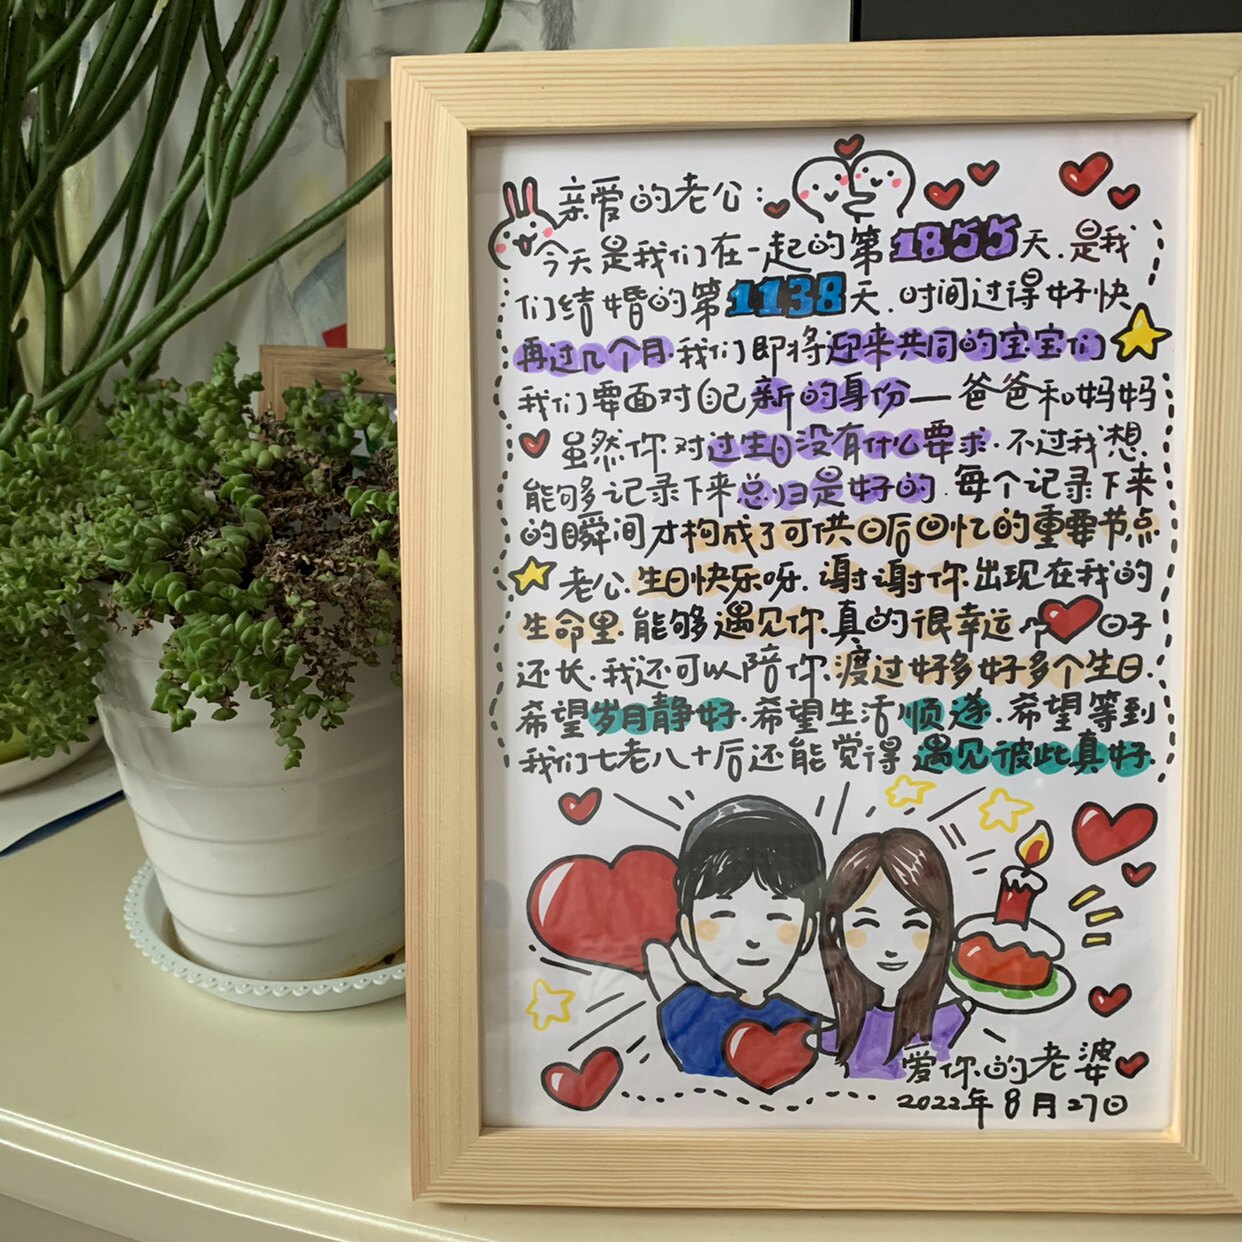 亲爱的老公:
今天是我们在一起的第1855天.是我
们结婚的第1138天.时间过得好快
再过几个月.我们即将迎来共同的宝宝们
我们要面对自己新的身份—爸爸和妈妈
虽然你对过生日没有什么要求.不过我想
能够记录下来总归是好的.每个记录下来
的瞬间才构成了可供日后回忆的重要节点
老公.生日快乐呀.谢谢你出现在我的
生命里.能够遇见你.真的很幸运~日子
还长.我还可以陪你.渡过好多好多个生日.
希望岁月静好.希望生活顺遂.希望等到
我们七老八十后还能觉得遇见彼此真好.
爱你的老婆
2022年8月27日